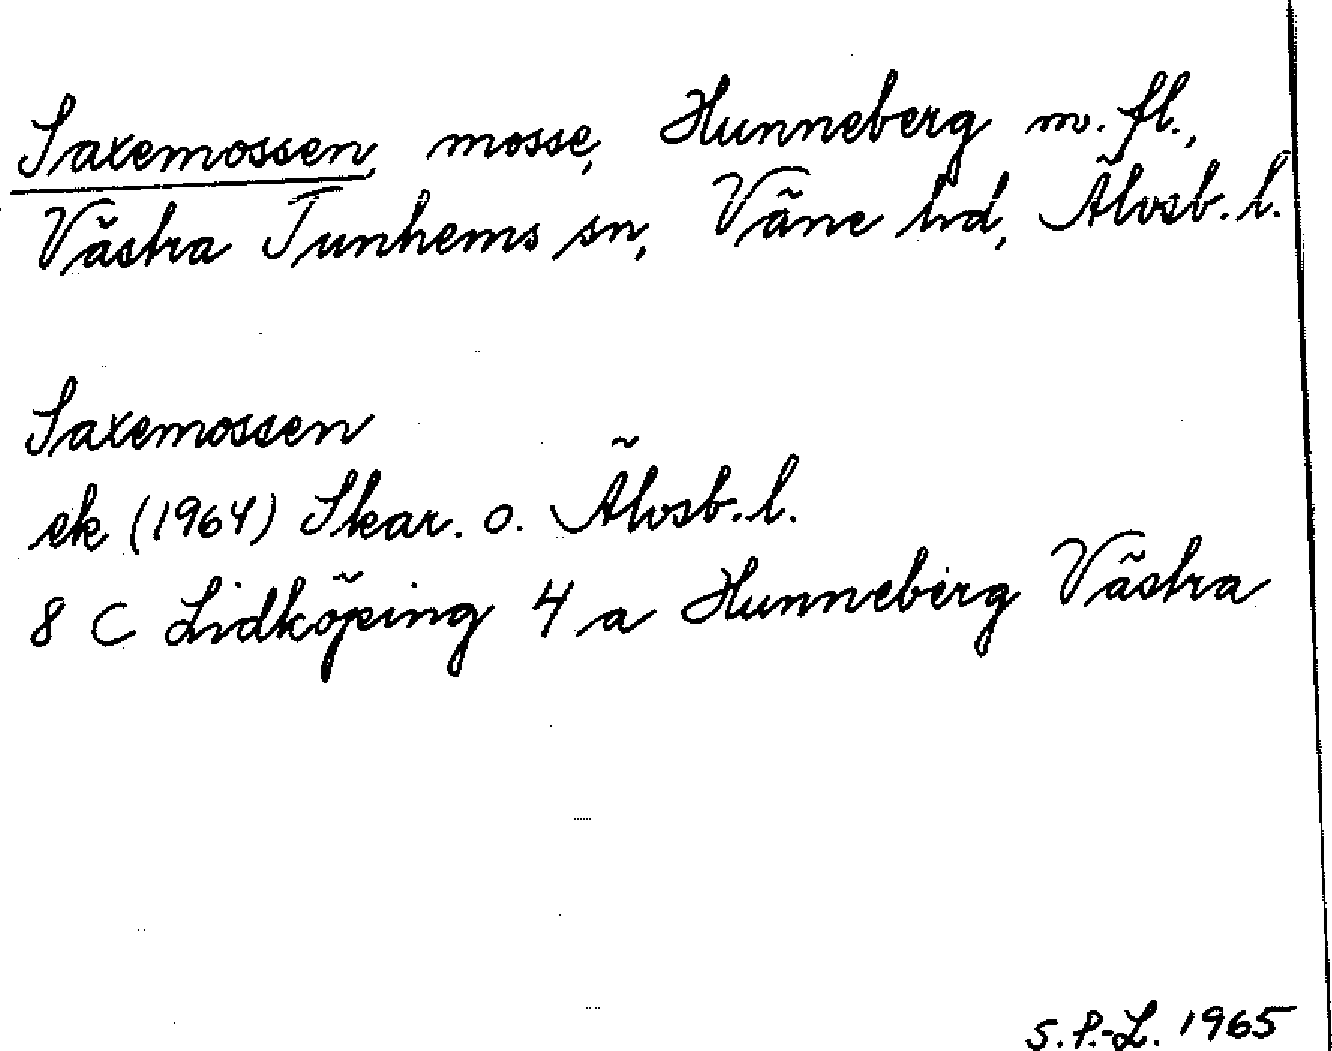 Saxemossen, mosse, Hunneberg m. fl.,
Västra Tunhems sn, Väne hd, Älvsb. l.
Saxemossen
ek (1964) Skar. o. Älvsb. l.
8 C Lidköping 4 a Hunneberg Västra
S. P.-L. 1965